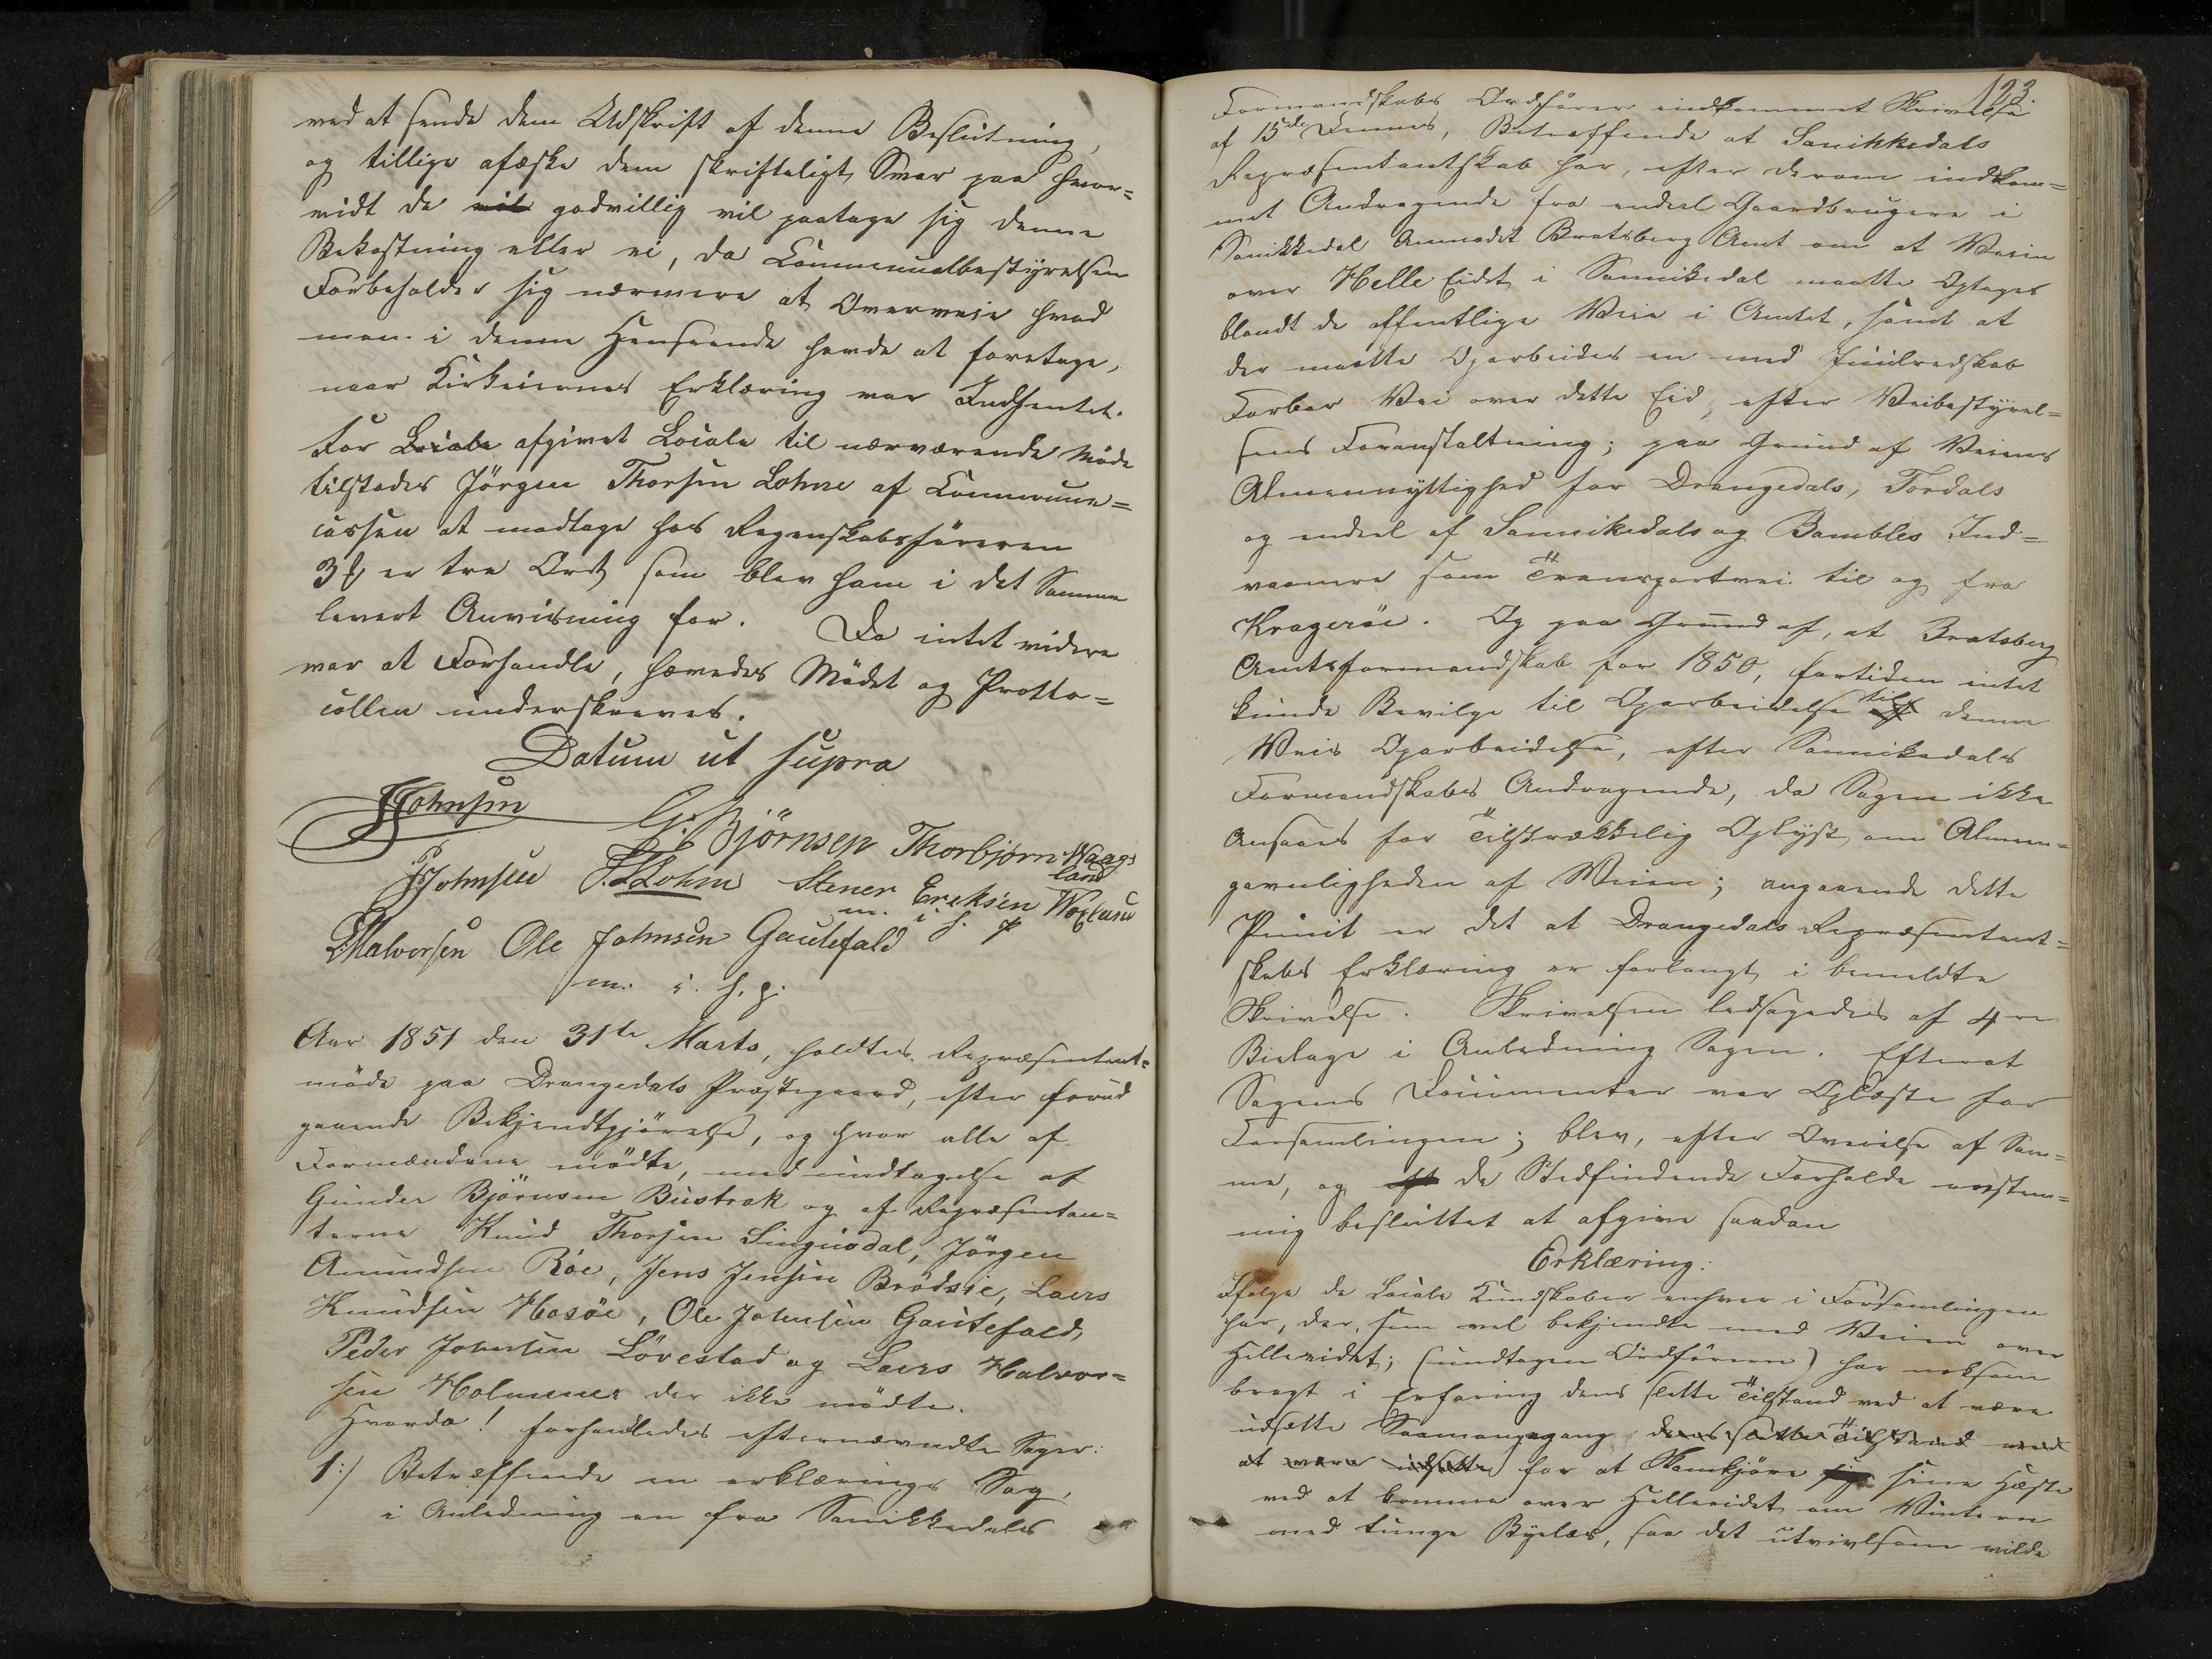 ved at sende dem Udskrift af denne Beslutning,
og tillige afæske dem skrifteligt Svar paa hvor=
vidt de vil godvillig vil paatage sig denne
Bekostning eller ei, da Communalbestyrelsen
Forbeholder sig nærmere at Overveie hvad
man i denne Henseende havde at foretage,
naar Kirkeiernes Erklæring var Indhentet.
For Locale afgivet Locale til nærværende Møde
tilstodes Jörgen Thorsen Lohne af Commune=
cassen at modtage hos Regnskabsföreren
3 er tre Ort som blev ham i det Samme
levert Anvisning for. Da intet videre
var at Forhandle, hævedes Mödet og Protto=
collen underskreves.
Datum ut supra
JJohnsen
G. Björnsen Thorbjørn Waags
land
JJohnsen Lohne Stener Ereksen Woxlasu
m. i. h. p
Halvorsen Ole Johnsen Gautefald
m. i. h. p.
Aar 1851 den 31te Marts, holdtes Repræsentant=
möde paa Drangedals Præstegaard, efter forud
gaaende Bekjendtgjörelse, og hvor alle af
Formændene mödte, med undtagelse af
Gunder Björnsen Bustrak og af Repræsentan=
terne Knud Thorsen Singusdal, Jörgen
Amundsen Röe, Jens Jensen Brödsöe, Laers
Knudsen Hosöe, Ole Johnsen Gautefald,
Peder Johnsen Lövestad og Laers Halvor=
sen Holmene der ikke mödte.
Hvorda! forhandledes efternævndte Sager:
1:/ Betræffende en erklærings Sag,
i Anledning en fra Sanikkedals
123.
Formandskabs Ordförer indkommet Skrivelse
af 15de Dennes, Betræffende at Sanikkedals
Repræsentantskab har, efter derom indkom=
met Andragende fra endeel Gaardbrugere i
Sanikkedal Anmodet Bratsberg Amt om at Veien
over Helle Eidet i Sannikedal maatte Optages
blandt de offentlige Veie i Amtet, samt at
der maatte Oparbeides en med Hjulredskab
Farbar Vei over dette Eid, efter Veibestyrel=
sens Foranstaltning; paa Grund af Veiens
Almennyttighed for Drangedals, Tördals
og endeel af Sannikedals og Bambles Ind=
vaanere som Transportvei til og fra
Krageröe. Og paa Grund af, at Bratsberg
Amtsformandskab for 1850, fortiden intet
kunde Bevilge til Oparbeidelse af til denne
Veis Oparbeidelse, efter Sannikedals
Formandskabs Andragende, da Sagen ikke
Ansaaes for Tilstrækkelig Oplyst om Almen=
gavnligheden af Veien; angaaende dette
Punct er det at Drangedals Repræsentant=
skabs Erklæring er forlangt i bemeldte
Skrivelse. Skrivelsen ledsagedes af 4re
Bielage i Anledning Sagen. Efterat
Sagens Documenter var Oplæste for
Forsamlingen; blev, efter Overveielse af Sam=
me, og eft de Stedfindende Forholde eenstem=
mig besluttet at afgive saadan
Erklæring:
Ifølge de Locale Kundskaber enhver i Forsamlingen
har, der, som vel bekjendte med Veien over
Helleeidet; (undtagen Ordföreren) har noksom
bragt i Erfaring dens slette Tilstand ved at være
udsatte Saamangegang dens slette Tilstand ved
at være udsatte for at Skamkjöre sig sine Heste
ved at komme over Helleeidet om Vinteren
med tunge Byelæs, saa det utvivlsom vilde